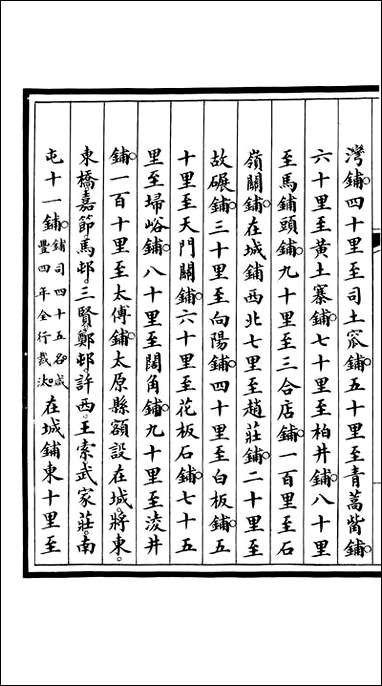 灣鋪四十里至司土窊鋪五十里至青蒿嘴鋪
六十里至黃土寨鋪七十里至柏井鋪八十里
至馬鋪頭鋪九十里至三合店鋪一百里至石
嶺關鋪在城鋪西北七里至趙莊鋪二十里至
故碾鋪三十里至向陽鋪四十里至白板鋪五
十里至天門關鋪六十里至花板石鋪七十五
里至埽峪鋪八十里至闊角鋪九十里至淩井
鋪一百十里至太傅鋪太原縣額設在城將東
東橋嘉節馬邨三賢鄭邨許西王索武家莊南
屯十一鋪鋪司四十五名咸
豐四年全行裁汰在城鋪東十里至